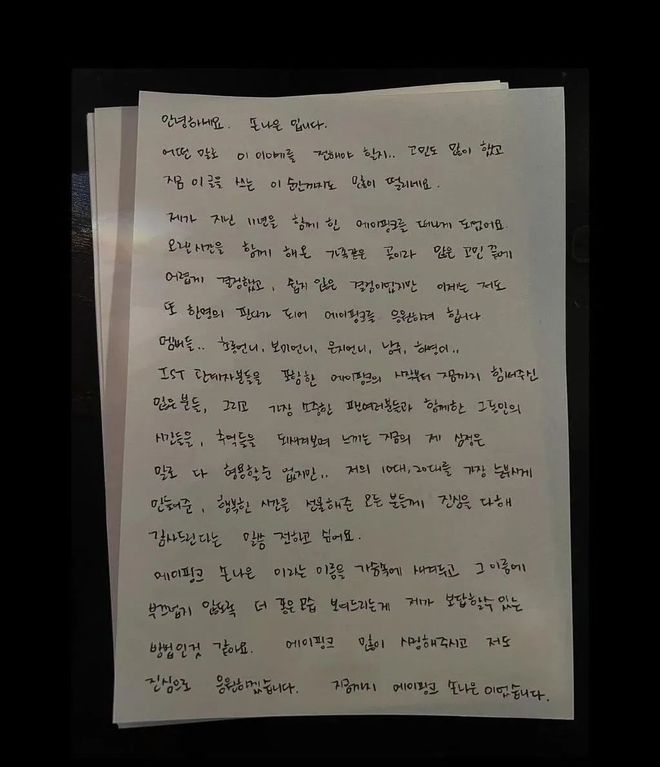 안녕하세요. 손나은 입니다.
어떤 말로 이 이야기를 전해야 할지.. 고민도 많이 했고
지금 이 글을 쓰는 이 순간까지도 많이 떨리네요.
제가 지난 11년을 함께 한 에이핑크를 떠나게 되었어요.
오랜시간을 함께 해온 가족같은 곳이라 많은 고민 끝에
어렵게 결정했고, 쉽지 않은 결정이었지만 이제는 저도
또 한명의 판다가 되어 에이핑크를 응원하려 합니다
멤버들.. 초롱언니, 보미언니, 은지언니, 남주, 하영이..
IST 관계자분들을 포함한 에이핑크의 시작부터 지금까지 힘써주신
많은 분들, 그리고 가장 소중한 팬여러분들과 함께한 그동안의
시간들을, 추억들을 되새겨보며 느끼는 지금의 제 심정은
말로 다 형용할 순 없지만.. 저의 10대, 20대를 가장 눈부시게
만들어준, 행복한 시간을 선물해준 모든 분들께 진심을 다해
감사드린다는 말씀 전하고 싶어요.
에이핑크 손나은 이라는 이름을 가슴속에 새겨두고, 그 이름에
부끄럽지 않도록 더 좋은 모습 보여드리는게 제가 보답할 수 있는
방법인것 같아요. 에이핑크 많이 사랑해주시고 저도
진심으로 응원하겠습니다. 지금까지 에이핑크 손나은 이었습니다.